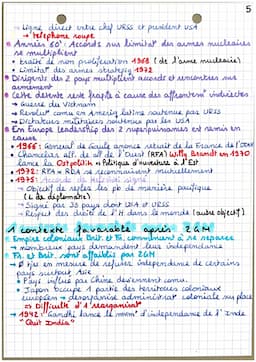 5
→ Ligne direct entre chef URSS et président USA
→ "téléphone rouge"
• Années 60 : Accords sur limitat° des armes nucléaires
se multiplient
• traité de non prolifération 1968 (de l'arme nucléaire)
• Limitat° des armes strateg 1972
• Dirigents des 2 pays multiplient accords et rencontres sur
armement
• Cette détente reste fragile à cause des affrontem indirectes
→ Guerre du Vietnam
→ Revolut° comu en Ameriq latine soutenue par URSS
→ Dictatures militaires soutenues par les USA
• En Europe leadership des 2 superpuissances est remis en
cause
• 1966 : General de Gaule annonce retrait de la France de l'OTAN
• Chancelier all. de all de l'Ouest (RFA) Willy Brandt en 1970
lance la Ostpolitik = Politique d'ouverture à l'Est
• 1972 : RFA & RDA se reconnaissent mutuellement
• 1975 :
→ Objectif de regler les pb de manière pacifique
(de diplomatie)
→ Signé par 35 pays dont USA et URSS
→ Respect des droits de l'H dans le monde (autre objectif)
1 contexte favorable après 2GM
• Empire coloniaux Brit. et Fr. commencent à se
• Nombreux pays demandent leur indépendance
• Fr. et Brit. sont affaiblis par 2GM
• Ø ê en mesure de refuser indépendance de certains
pays surtout Asie
• Pays influé par Chine deviennent comu.
• Japon occupe 1 partie des territoires coloniaux
européen → désorganisé administrat° coloniale sur place
⇒ Difficulté d'1 réorganisat°
• 1942 : Gandhi lance le mom° d'indépendance de l'Inde
"Quit India"